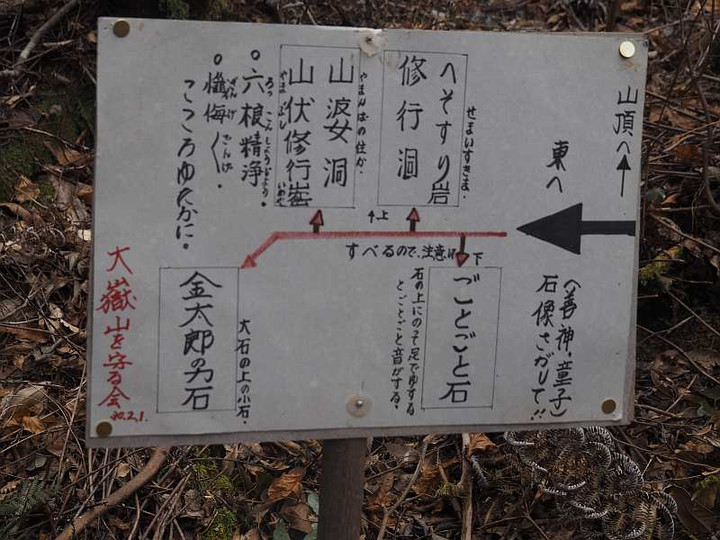 山頂へ
東へ
(善神、童子)
石像さがして!!
せまいすきま。
へそすり岩
修行洞
やまんばの住か。
山婆洞
山伏修行窟
やまぶし
いわや
○六根精浄。
ろっこんしょうじょう。
○懺悔〱。
ざんげ ざんげ
こころゆたかに。
上
すべるので、注意!!
下
ごとごと石
石の上にのぞ足でゆする
とごとごと音がする。
大石の上の小石。
金太郎の力石
大嶽山を守る会
20.2.1.